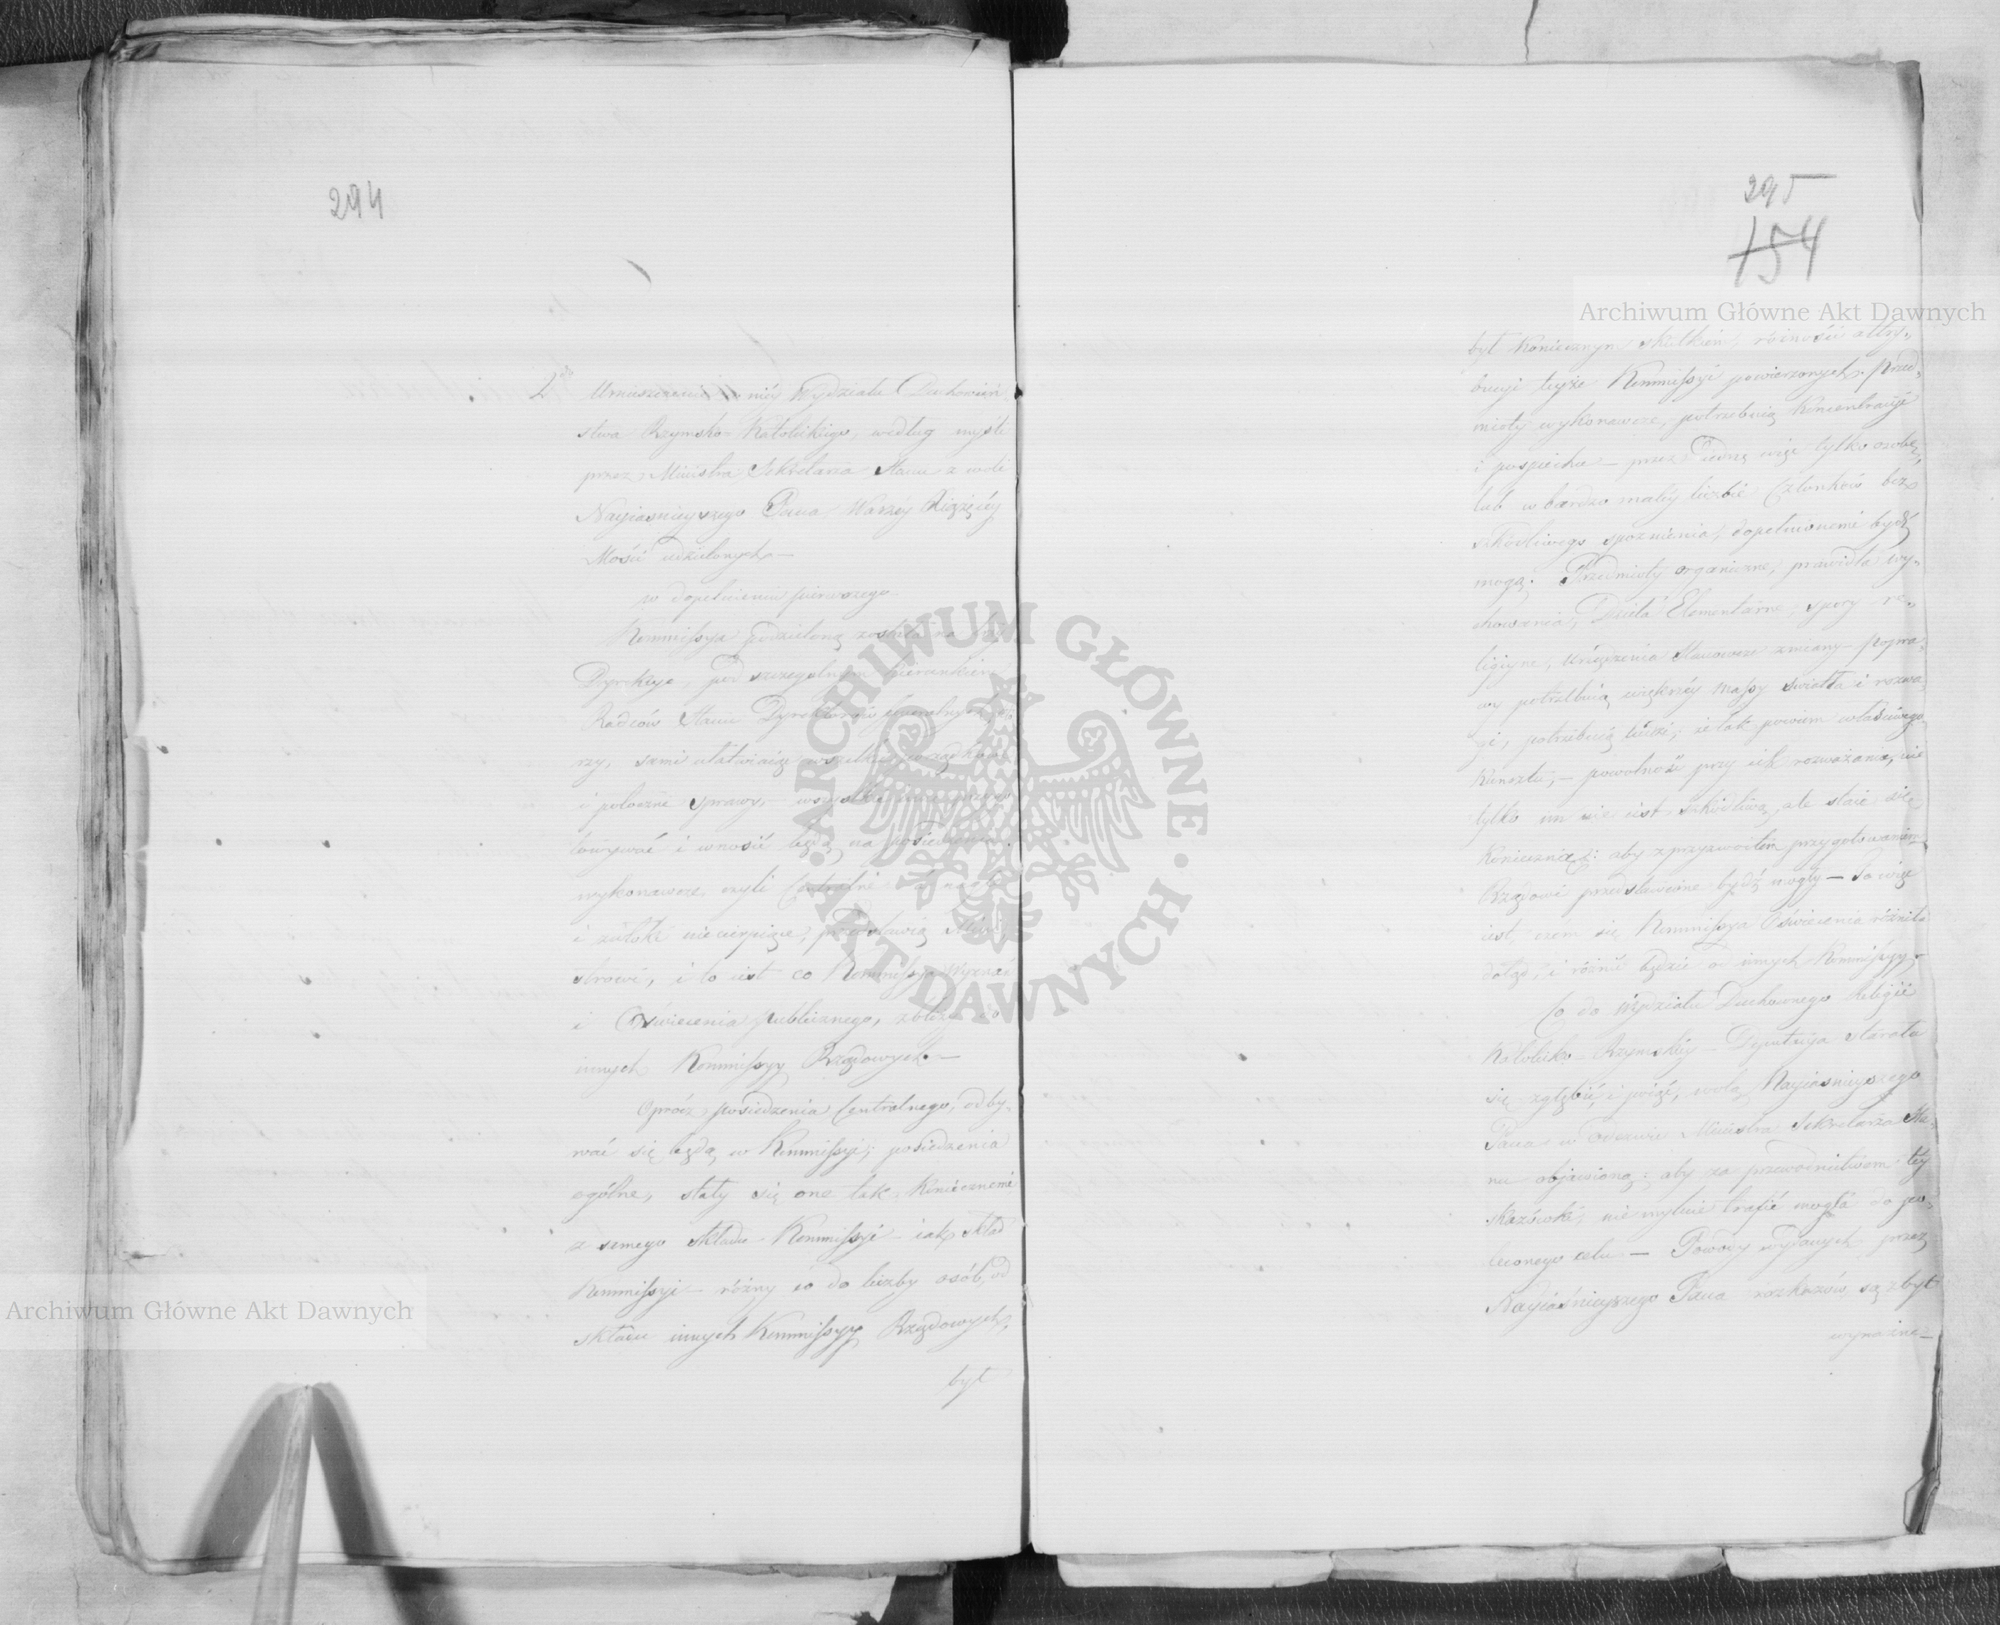 294
2do Umieszczenie w niéy Wydziału Duchowień
stwa Rzymsko-Katolickiego, według myśli
przez Ministra Sekretarza Stanu z woli
Nayiaśnieyszego Pana Waszéy Xiążęcéy
Mości udzielonych —
w dopełnieniu pierwszego
Kommissya podzieloną została na trzy
Dyrekcye, pod szczególnym kierunkiem
Radców Stanu Dyrektorów Jeneralnych, któ
rzy, sami ułatwiaiąc wszelkie porządkowe
i potoczne sprawy, wszystkie
i wnosić będą na posiedzenia
wykonawcze, czyli Centralne
i zwłoki niecierpiące, przedstawią Mini
strowi, i to iest co Kommissyą Wyznań
i Oświecenia Publicznego, zbliża do
innych Kommissyy Rządowych. —
Oprócz posiedzenia Centralnego, odby-
wać się będą w Kommissyi, posiedzenia
ogólne, stały się one tak koniecznemi
z samego składu Kommissyi iak skład
Kommissyi różny co do liczby osób, od
składu innych Kommissyy Rządowych,
był
295
154
był koniecznym skutkiem, różności attry-
bucyi teyże Kommissyi powierzonych. Przed-
mioty wykonawcze, potrzebuią koncentracyi
i pospiechu — przez iedną więc tylko osobę,
lub w bardzo małéy liczbie Członków bez
szkodliwego spoznienia, dopełnionemi bydź
mogą. Przedmioty organiczne, prawidła wy-
chowania, Dzieła Elementarne, spory re-
ligiyne, urządzenia Stanowcze zmiany popra-
wy potrzebuią większéy massy światła i rozwa-
gi, potrzebuią że tak powiem właściwego
kunsztu, — powolność przy ich rozważaniu, nie
tylko im nie iest szkodliwą, ale staie się
konieczną: aby z przyzwoitém przygotowaniem
Rządowi przedstawione bydź mogły — To więc
iest, czém się Kommissya Oświecenia różniła
dotąd, i różnić będzie od innych Kommissyy.
Co do Wydziału Duchownego Religii
Katolicko-Rzymskiéy — Deputacya starała
się zgłębić, i poiąć, wolą Nayiaśnieyszego
Pana w odezwie Ministra Sekretarza Sta-
nu objawioną; aby za przewodnictwem téy
skazówki, nie mylnie trafić mogła do po-
leconego celu — Powody wydanych przez
Nayiaśnieyszego Pana rozkazów, są zbyt
wyraźne —
Archiwum Główne Akt Dawnych
Archiwum Główne Akt Dawnych
ARCHIWUM GŁÓWNE · AKT DAWNYCH ·